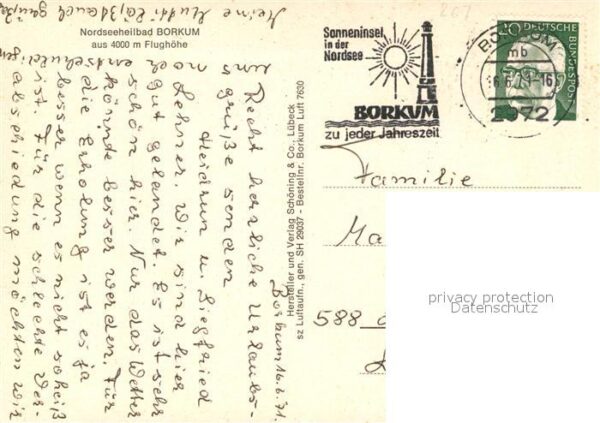 Nordseeheilbad BORKUM
aus 4000 m Flughöhe
Borkum 16.6.71.
Recht herzliche Urlaubs-
grüße senden
uns Heidrun u. Siegfried
Lehner. Wir sind hier
gut gelandet. Es ist sehr
schön hier. Nur das Wetter
könnte besser werden. Für
die Erholung ist es ja
besser wenn es nicht so heiß
ist. Für die schlechte Ver-
abschiedung möchten wir
noch entschuldigen
Meine Mutti läßt auch grüßen
Hersteller und Verlag Schöning & Co., Lübeck
sz Luftaufn., gen. SH 29037 - Bestellnr. Borkum Luft 7630
Sonneninsel
in der
Nordsee
BORKUM
zu jeder Jahreszeit
DEUTSCHE
BUNDESPOST
mb
2972
Familie
Ma
588
privacy protection
Datenschutz